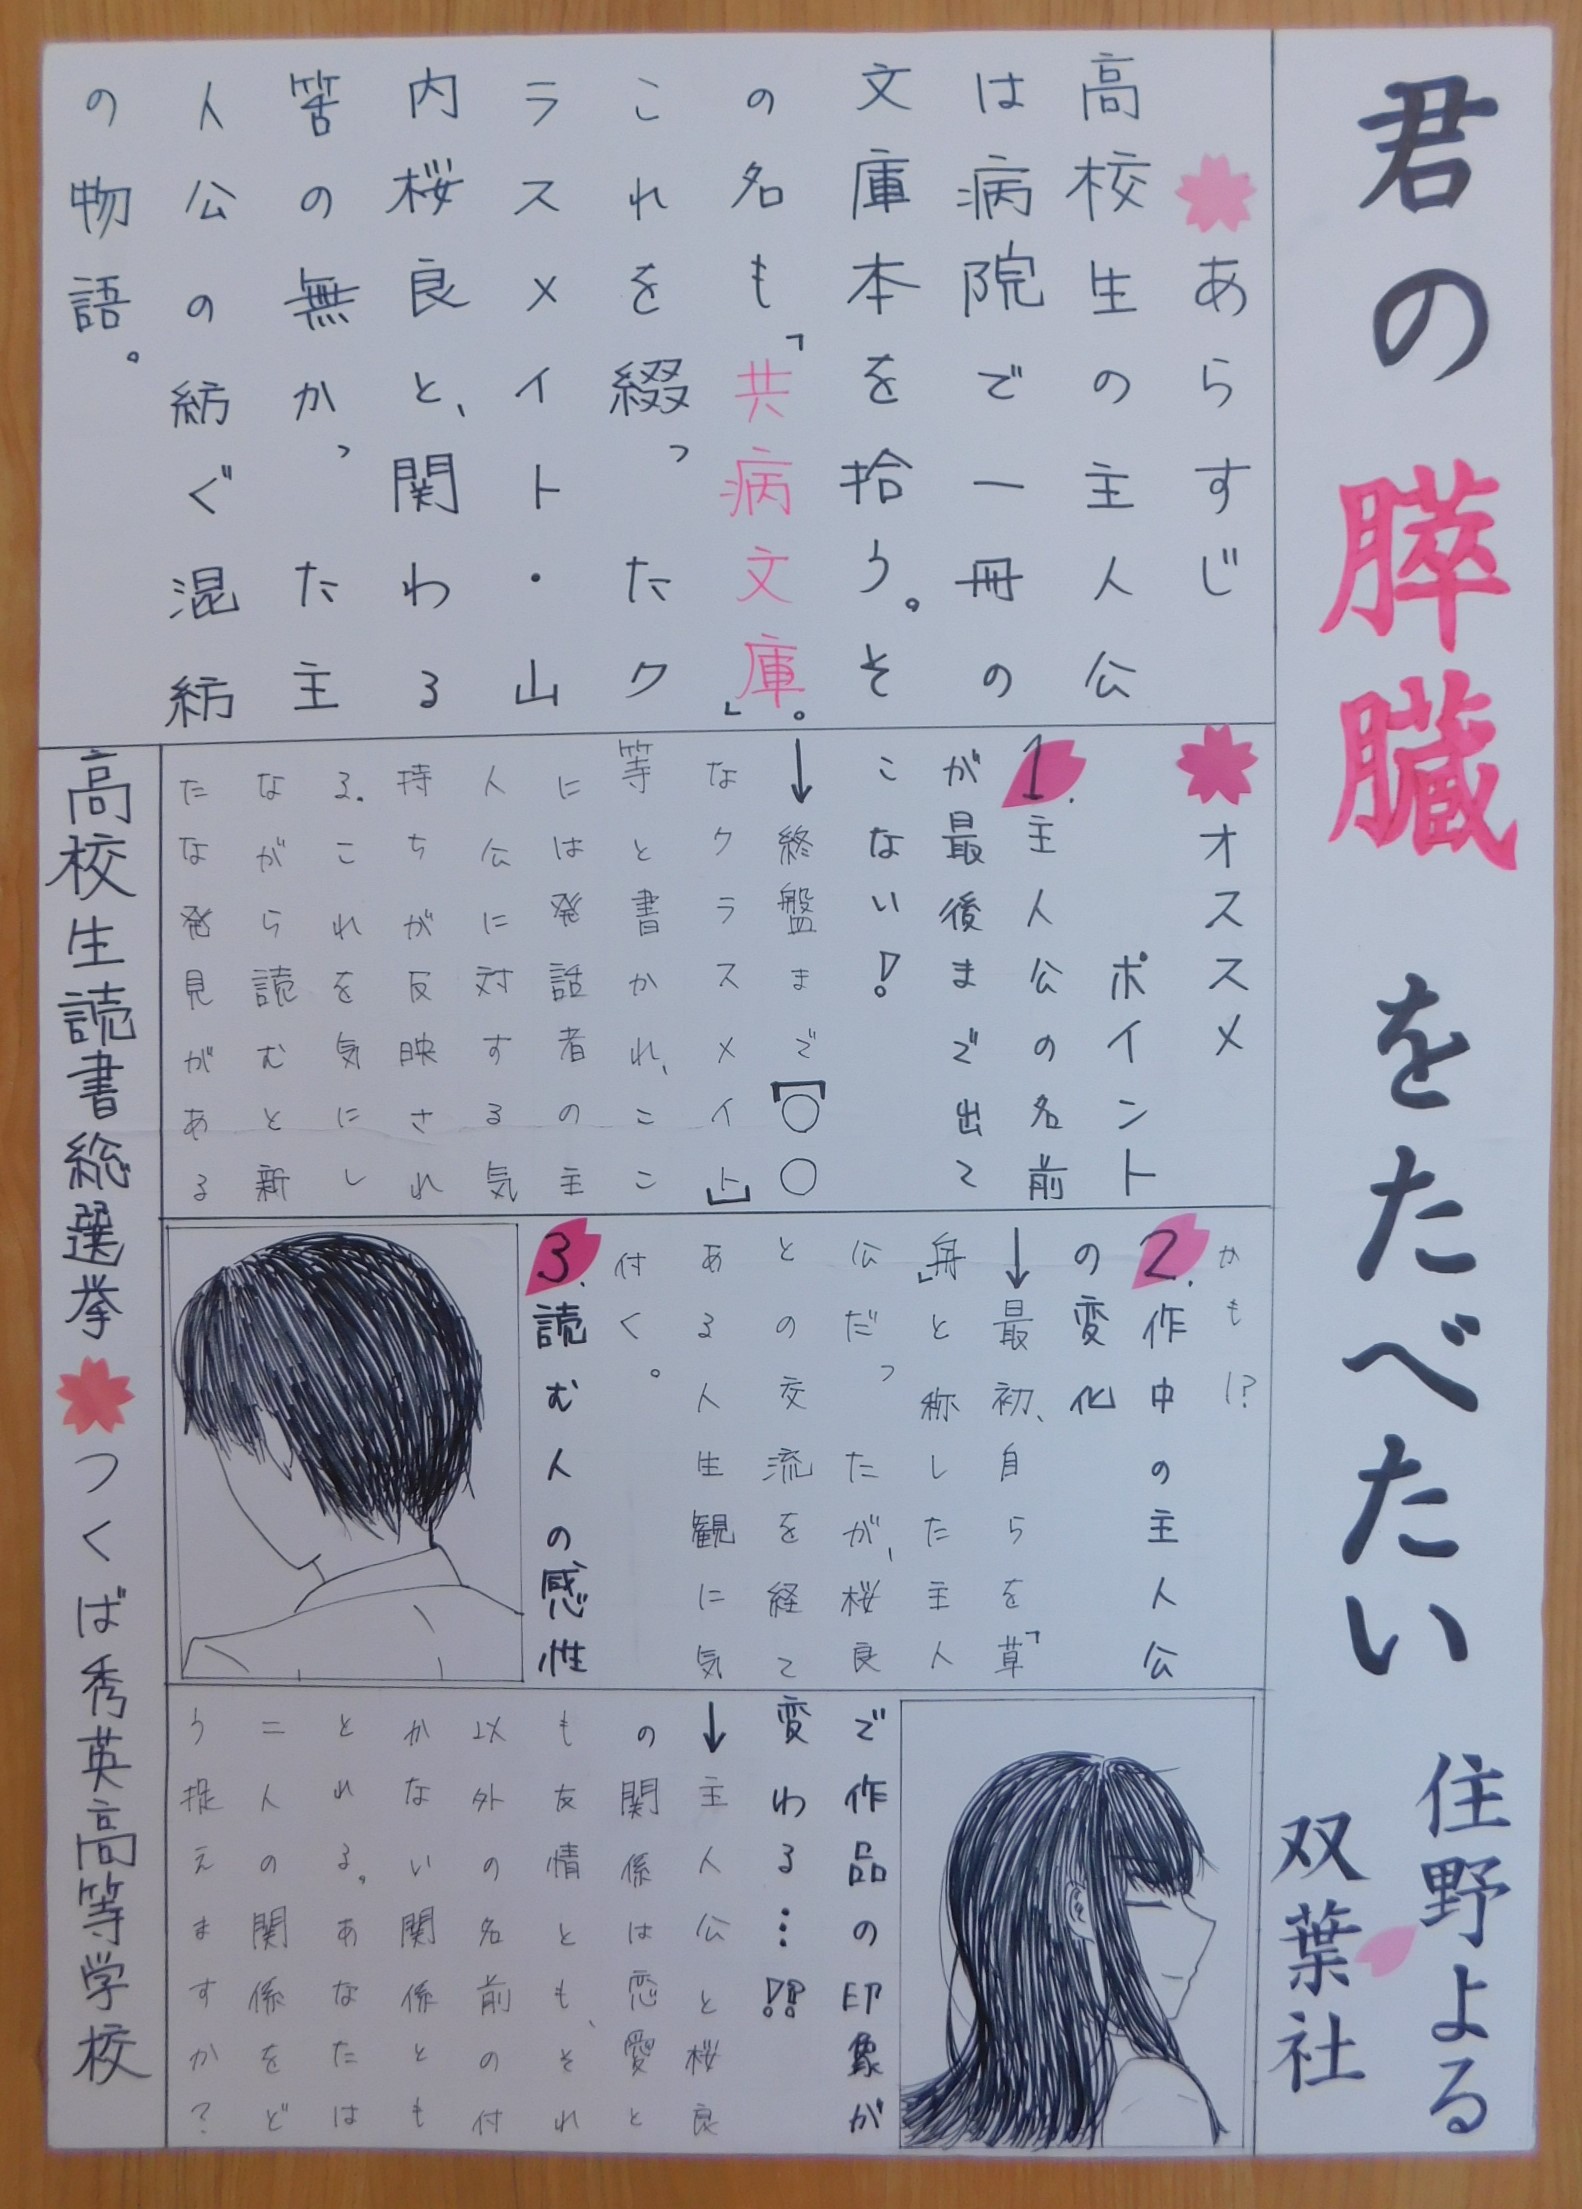 君の膵臓をたべたい
住野よる
双葉社
あらすじ
高校生の主人公
は病院で一冊の
文庫本を拾う。そ
の名も「共病文庫」。
これを綴ったク
ラスメイト・山
内桜良と、関わる
筈の無かった主
人公の紡ぐ混紡
の物語。
オススメ
ポイント
1.主人公の名前
が最後まで出て
こない!
↓終盤まで【○○
なクラスメイト】
等と書かれ、ここ
には発話者の主
人公に対する気
持ちが反映され
る。これを気にし
ながら読むと新
たな発見がある
かも!?
2.作中の主人公
の変化
↓最初、自らを「草
舟」と称した主人
公だったが、桜良
との交流を経て
ある人生観に気
付く。
3.読む人の感性
で作品の印象が
変わる…!?
↓主人公と桜良
の関係は恋愛と
も友情とも、それ
以外の名前の付
かない関係とも
とれる。あなたは
二人の関係をど
う捉えますか?
高校生読書総選挙 つくば秀英高等学校